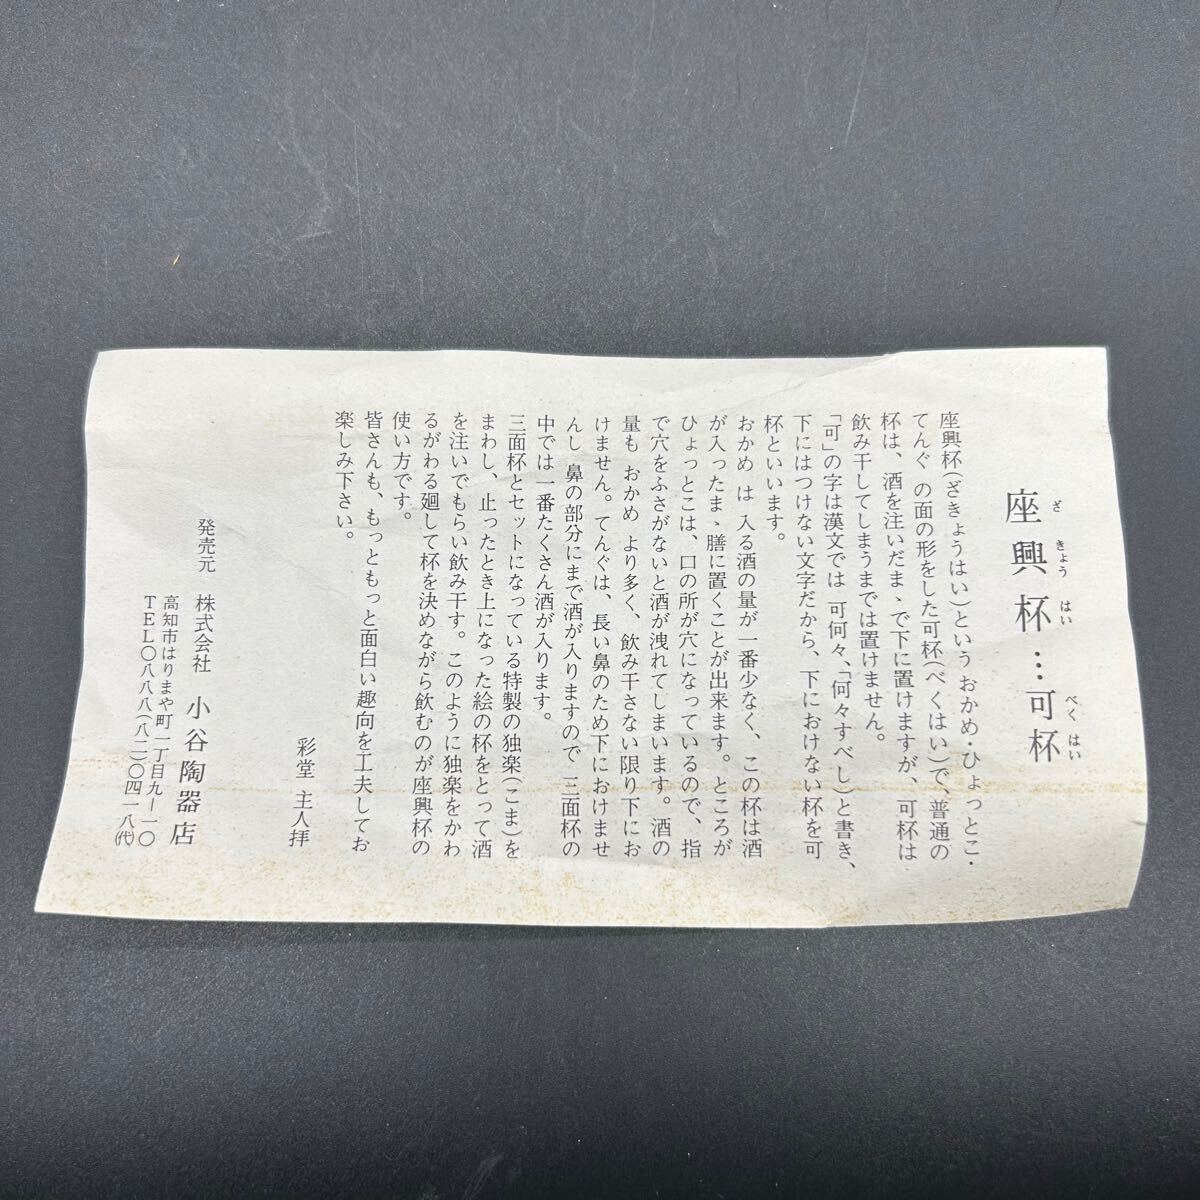 座興杯…可杯
ざきょうはい べくはい
座興杯(ざきょうはい)という おかめ・ひょっとこ・
てんぐ の面の形をした可杯(べくはい)で、普通の
杯は、酒を注いだまゝで下に置けますが、可杯は
飲み干してしまうまでは置けません。
「可」の字は漢文では 可何々、「何々すべし」と書き、
下にはつけない文字だから、下におけない杯を可
杯といいます。
おかめ は 入る酒の量が一番少なく、この杯は酒
が入ったまゝ膳に置くことが出来ます。ところが
ひょっとこは、口の所が穴になっているので、指
で穴をふさがないと酒が洩れてしまいます。酒の
量も おかめ より多く、飲み干さない限り下にお
けません。てんぐは、長い鼻のため下におけませ
んし 鼻の部分にまで酒が入りますので 三面杯の
中では一番たくさん酒が入ります。
三面杯とセットになっている特製の独楽(こま)を
まわし、止ったとき上になった絵の杯をとって酒
を注いでもらい飲み干す。このように独楽をかわ
るがわる廻して杯を決めながら飲むのが座興杯の
使い方です。
皆さんも、もっともっと面白い趣向を工夫してお
楽しみ下さい。
彩堂 主人拝
発売元 株式会社 小谷陶器店
高知市はりまや町一丁目九ー一〇
TEL〇八八八(八二)〇四一八(代)